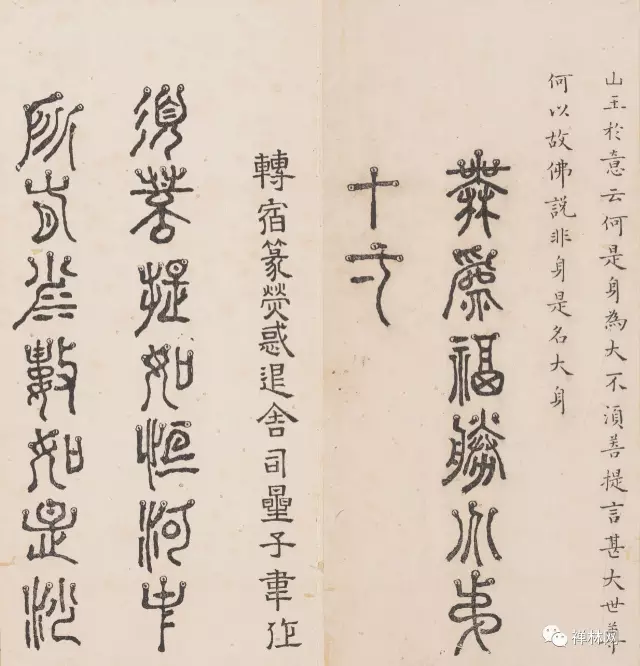 山王於意云何是身為大不須菩提言甚大世尊
何以故佛說非身是名大身
無爲福勝分弟
十弌
轉宿篆熒惑退舍司星子韋作
須菩提如恒河中
所有沙數如是沙
禅林网